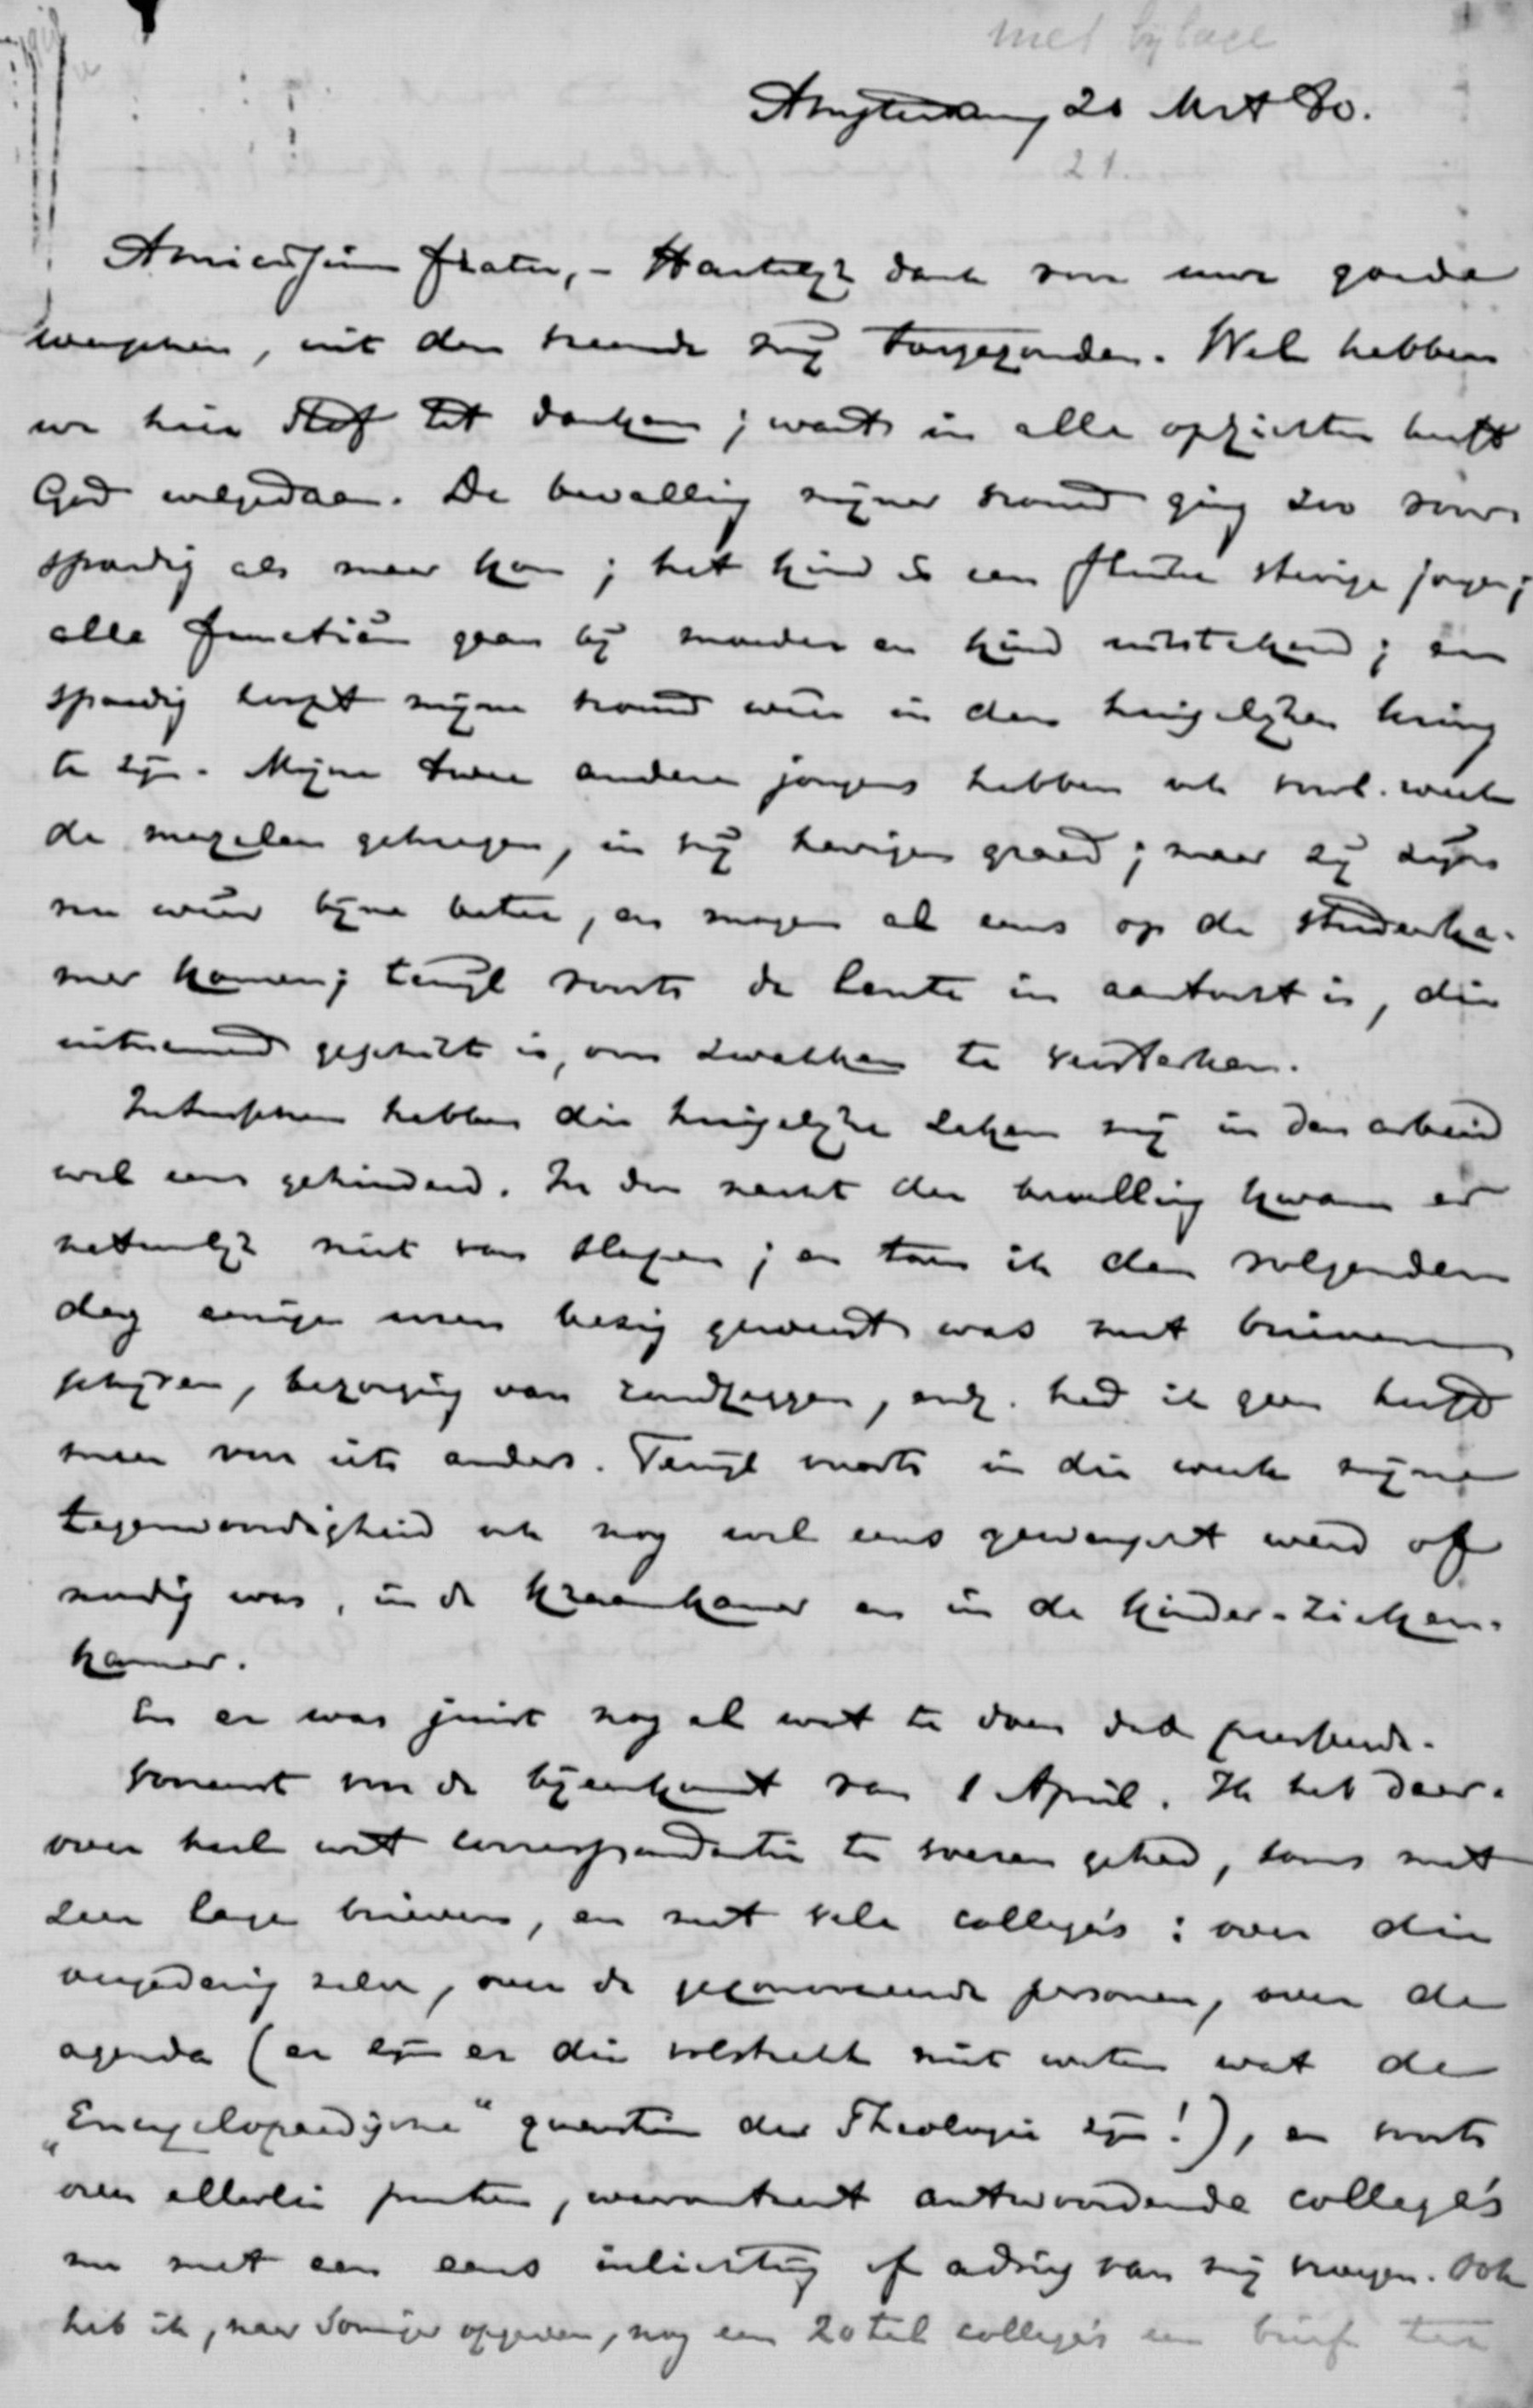 met bylage
Amsterdam, 20 Mrt 80.
21
Amicissime frater, - Hartelijk dank voor uwe goede
wenschen, uit den vreemde mij toegezonden. Wel hebben
we hier stof tot danken; want in alle opzichten heeft
God welgedaan. De bevalling mijner vrouw ging zoo voor-
spoedig als maar kon; het kind is een flinke stevige jongen;
alle functiën gaan bij moeder en kind uitstekend; en
spoedig hoopt mijne vrouw weer in den huiselijken kring
te zijn. Mijne twee andere jongens hebben ook verl. week
de mazelen gekregen, in vrij hevigen graad; maar zij zijn
nu weer bijna beter, en mogen al eens op de studeerka-
mer komen; terwijl voorts de lente in aantocht is, die
uitnemend geschikt is, om zwakken te versterken.
Intusschen hebben die huiselijke zaken mij in den arbeid
wel eens gehinderd. In den nacht der bevalling kwam er
natuurlijk niet van slapen; en toen ik den volgenden
dag eenige uren bezig geweest was met brieven
schrijven, bezorging van, enz. had ik geen hoofd
meer voor iets anders. Terwijl voorts in die week mijne
tegenwoordigheid ook nog wel eens gewenscht werd of
noodig was, in de kraamkamer en in de kinder-zieken-
kamer.
En er was juist nog al wat te doen
voor de bijeenkomst van 1 April. Ik heb daar-
over heel wat correspondentie te voeren gehad, soms met
zeer lange brieven, en met vele collega's: over die
vergadering zelve, over de personen, over de
agenda (er zijn er die volstrekt niet weten wat de
"Encyclopaedische" quaestiën der Theologie zijn!), en voorts
over allerlei punten, waaromtrent antwoordende collega's
nu met een eens inlichting of advies van mij vragen. Ook
heb ik, naar opgeven, nog een 20tal collega's een brief